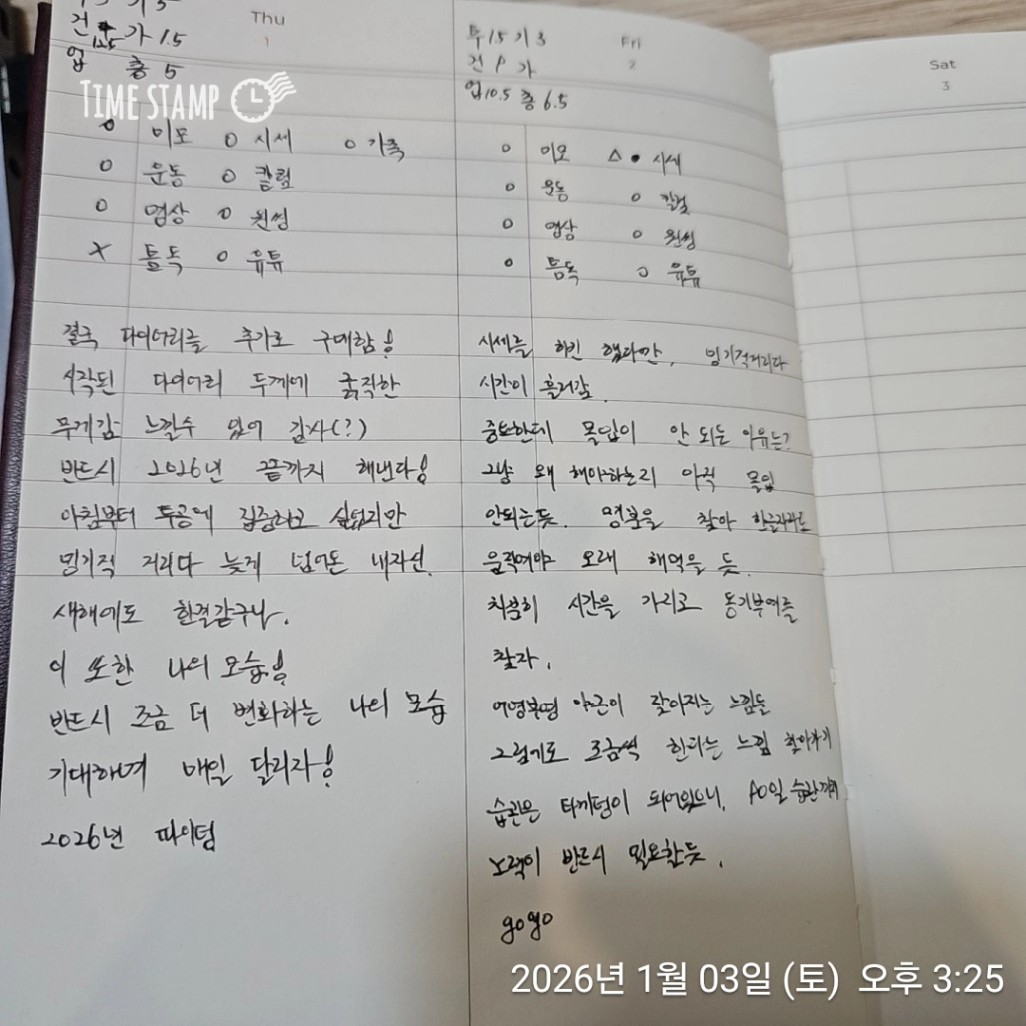 Thu
1
건 가 1.5
업 총 5
TIME STAMP
o 미모 o 시세 o 가족
o 운동 o 칼럼
o 영상 o 원씽
x 틈독 o 유튜
결국 다이어리를 추가로 구매함!
시작된 다이어리 두께에 굵직한
무게감 느낄수 있어 감사(?)
반드시 2026년 끝까지 해낸다!
아침부터 투공에 집중하고 싶었지만
밍기적 거리다 늦게 넘어온 내자신.
새해에도 한결같구나.
이 또한 나의 모습!
반드시 조금 더 변화하는 나의 모습
기대하며 매일 달리자!
2026년 따이팅
Fri
2
투 1.5 기 3
건 가
업 10.5 총 6.5
o 미모 △ 시세
o 운동 o 칼럼
o 영상 o 원씽
o 틈독 o 유튜
시세를 하긴 했다만, 밍기적거리다
시간이 흘러감.
중요한데 몰입이 안 되는 이유는?
그냥 왜 해야하는지 아직 몰입
안되는듯. 명분을 찾아 한글자라도
움직여야 오래 해먹을 듯.
차분히 시간을 가지고 동기부여를
찾자.
어영부영 야근이 잦아지는 느낌듦
그렇기도 조금씩 한다는 느낌 찾아가기
습관은 되어있으니, 습관까지
노력이 반드시 필요한듯.
gogo
Sat
3
2026년 1월 03일 (토) 오후 3:25